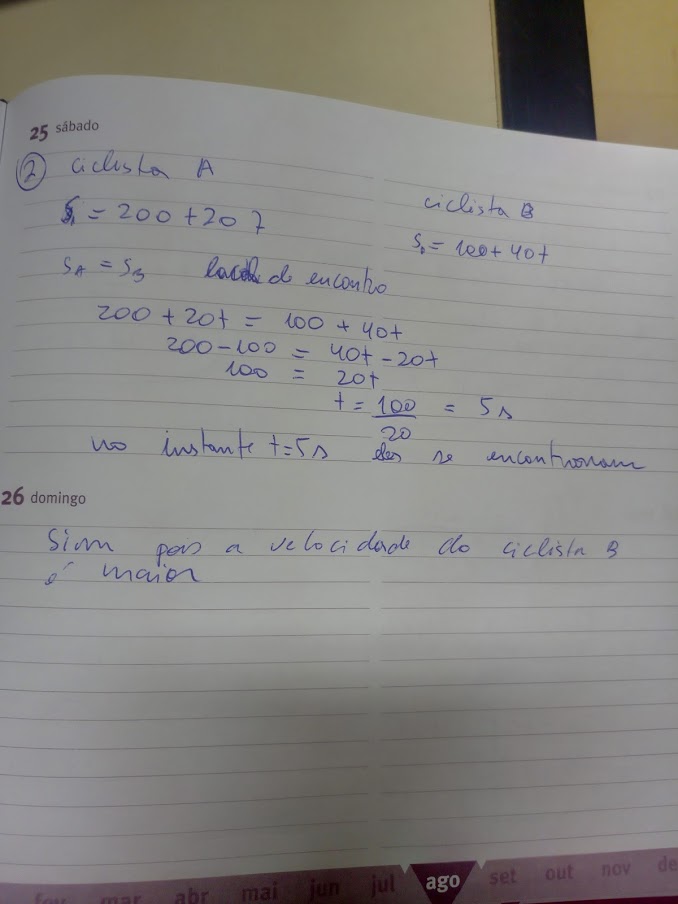 25 sábado
2 ciclista A
ciclista B
S = 200 + 20t
S = 100 + 40t
SA = SB local de encontro
200 + 20t = 100 + 40t
200 - 100 = 40t - 20t
100 = 20t
t = 100 = 5s
20
no instante t=5s eles se encontraram
26 domingo
Sim pois a velocidade do ciclista B
é maior
fev mar abr mai jun jul ago set out nov de